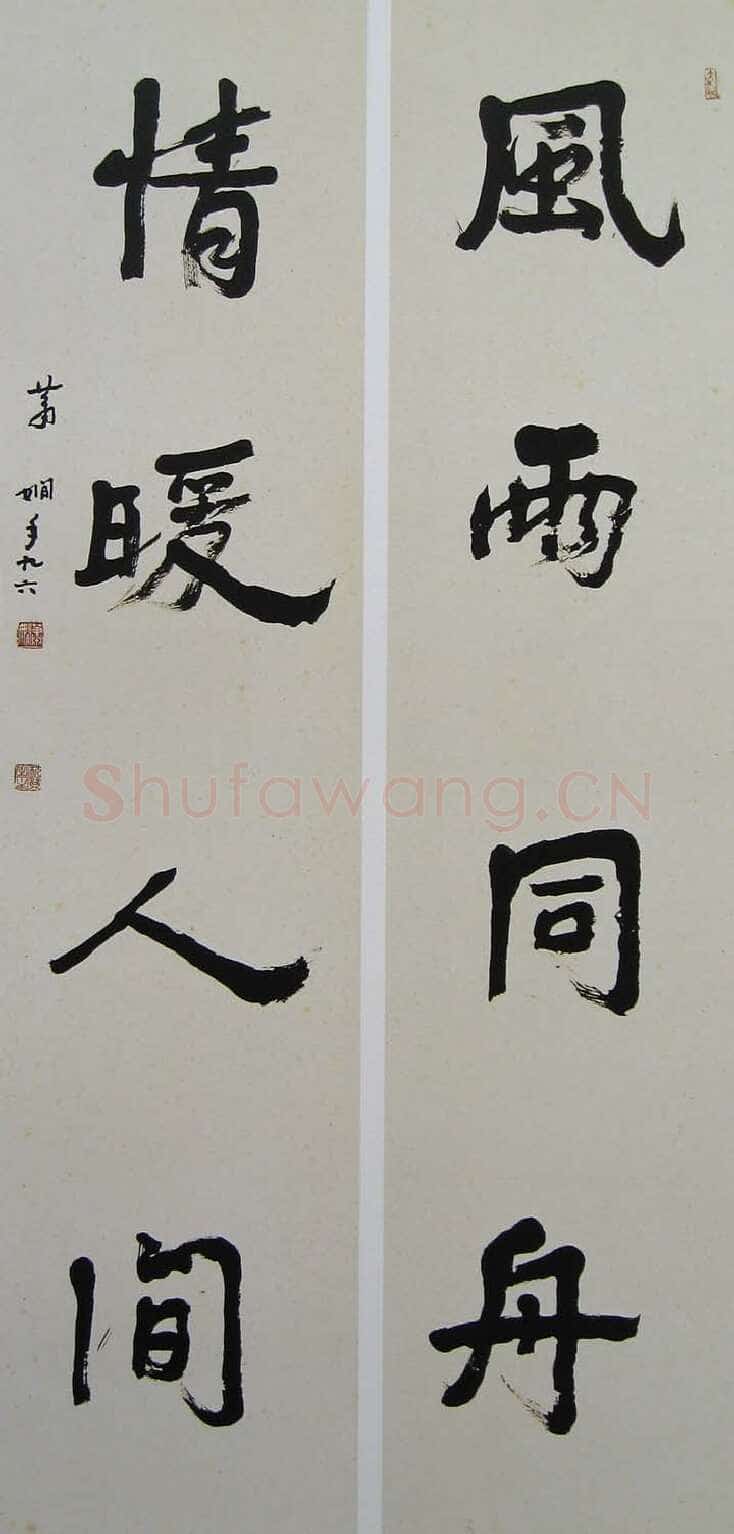 風雨同舟
情暖人間
蕭嫻年九六
Shufawang.CN